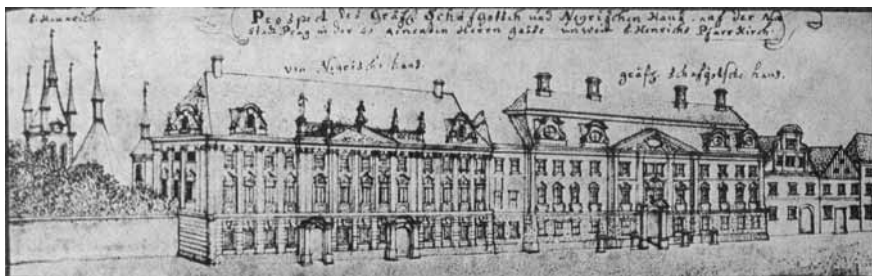 S. Heinrich.
Prospect des Gräffl. Schafgotsch und Negrischen Haus. auf der Neu
stadt Prag in der so genenten Herrn gaße unweit S. Henrichs Pfarr Kirch.
von Negrische haus.
gräffl. Schafgotsche haus.